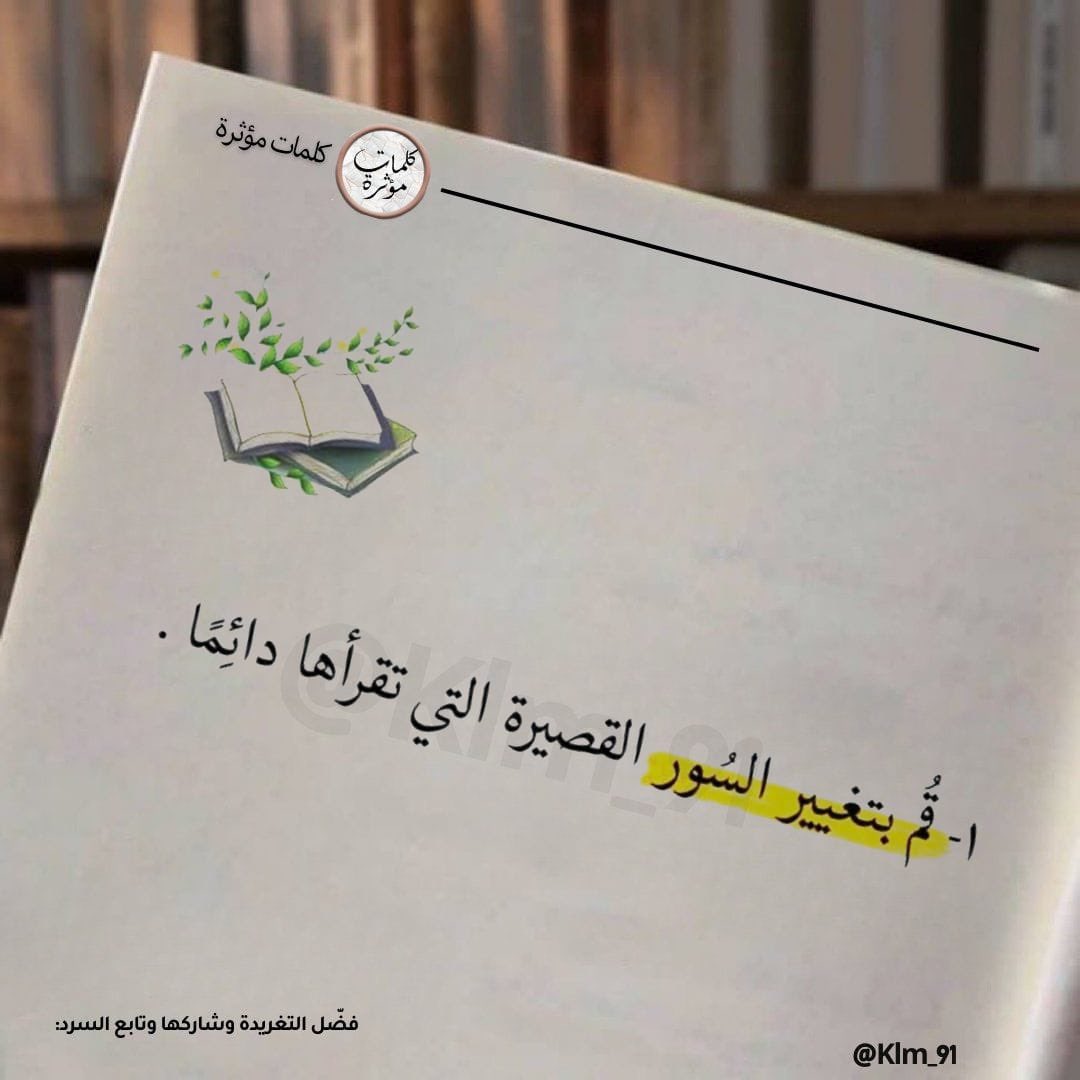 كلمات مؤثرة
كلمات
مؤثرة
١- قُم بتغيير السُور القصيرة التي تقرأها دائِمًا .
@Klm_91
فضّل التغريدة وشاركها وتابع السرد:
@Klm_91